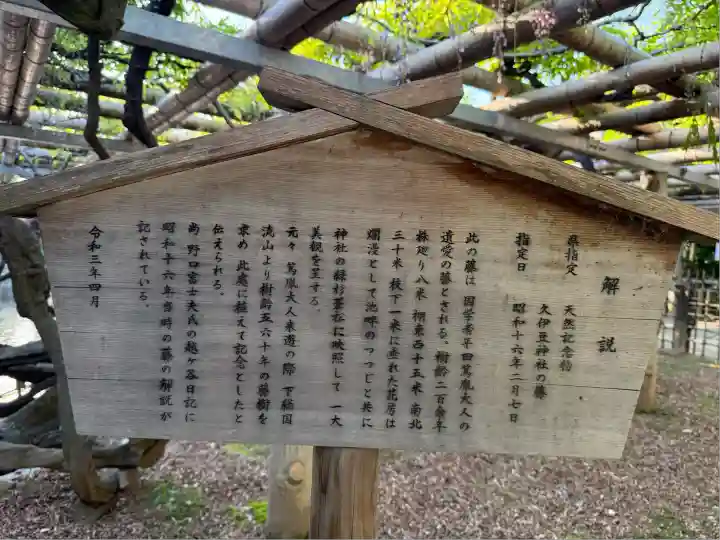 解説
県指定 天然記念物
久伊豆神社の藤
指定日 昭和十六年二月七日
此の藤は 国学者平田篤胤大人の
遺愛の藤とされる。樹齢二百余年
株廻り八米 棚東西十五米 南北
三十米 枝下一米に垂れた花房は
爛漫として池畔のつつじと共に
神社の緑杉蒼松に映照して 一大
美観を呈する。
元々 篤胤大人来遊の際 下総国
流山より樹齢五六十年の藤樹を
求め 此処に植えて記念としたと
伝えられる。
尚 野口富士夫氏の越ヶ谷日記に
昭和十六年当時の藤の解説が
記されている。
令和三年四月